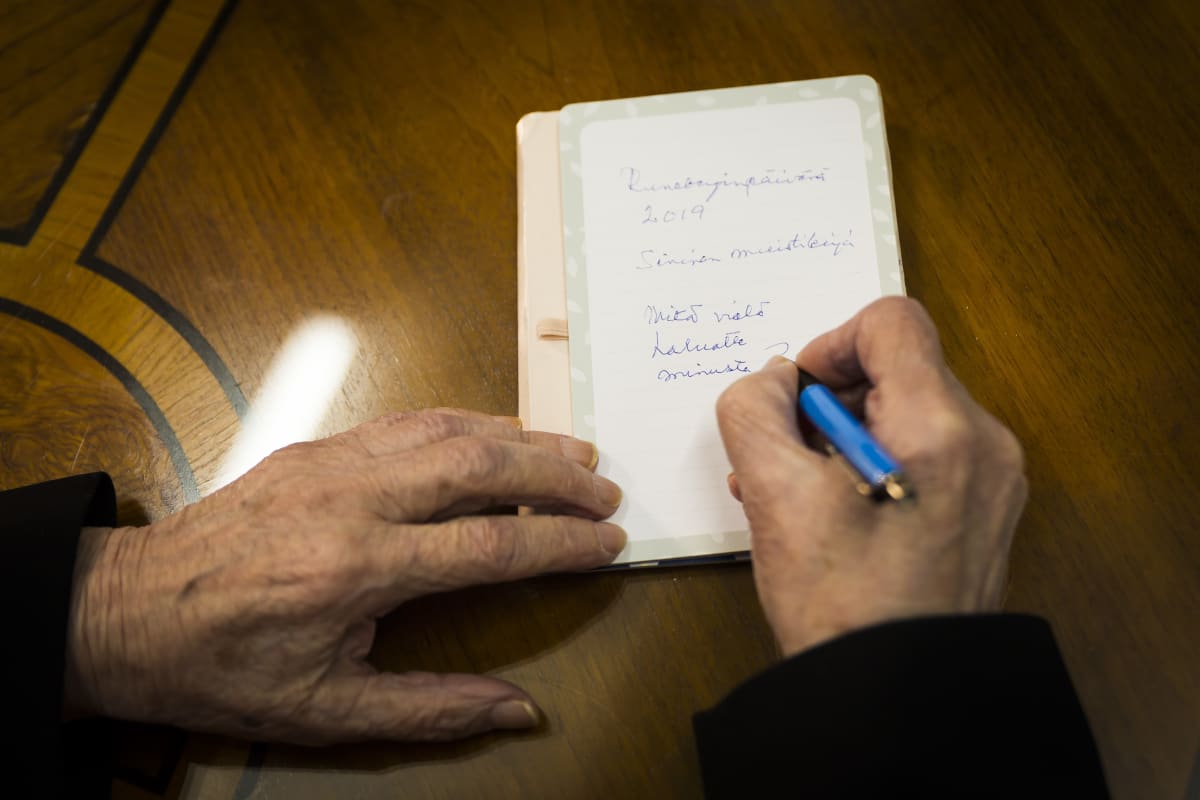 Runeberginpäivänä
2019
Sininen muistikirja
Mitä vielä
haluatte
minusta